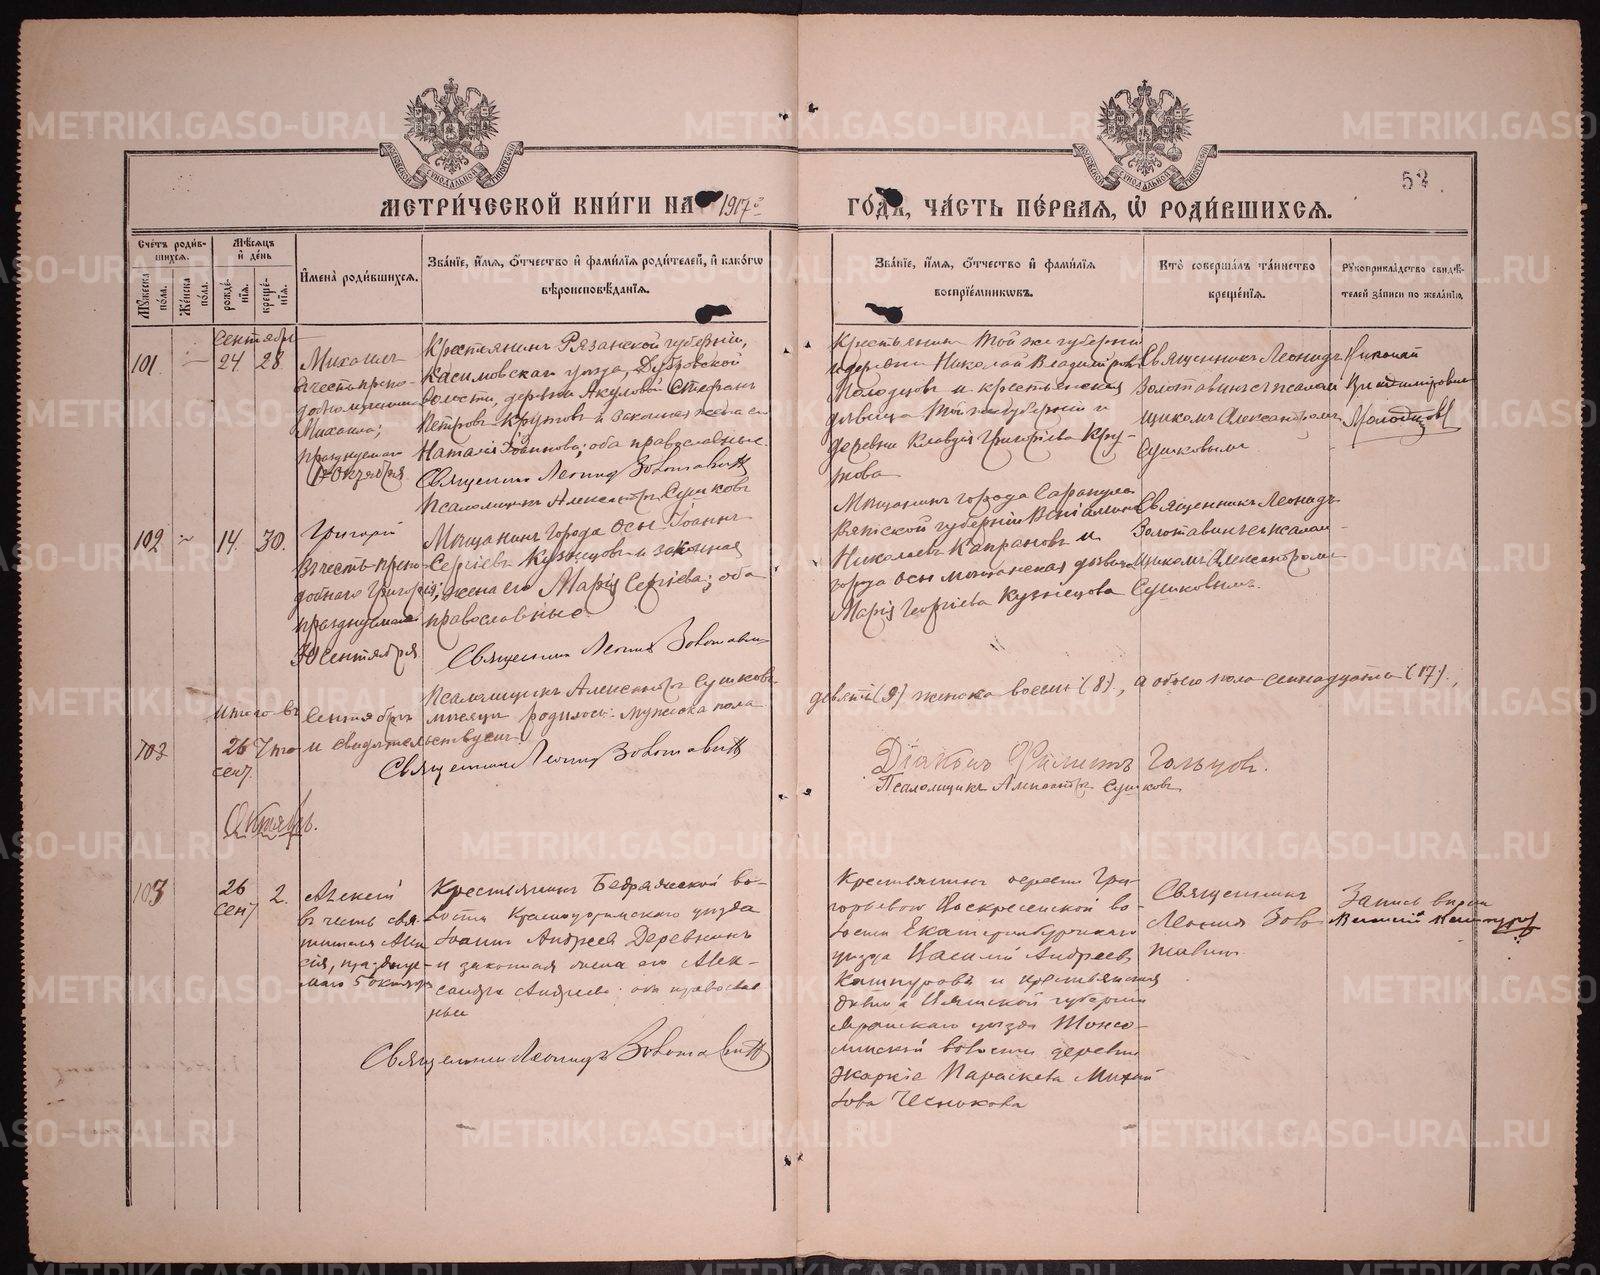 МЕТРИ́ЧЕСКОЙ КНИ́ГИ НА 1917 ГО́ДЪ, ЧА́СТЬ ПЕ́РВАЯ, Ѡ РОДИ́ВШИХСЯ.
52
Сче́тъ роди́вшихся.
Мѣ́сяцъ и де́нь
Му́жеска по́ла.
Же́нска по́ла.
рожде́нїя.
креще́нїя.
И҆мена̀ роди́вшихся.
Зва́нїе, и҆́мя, ѻ҆́тчество и҆ фами́лїя роди́телей, и҆ како́гѡ вѣроисповѣ́данїя.
Зва́нїе, и҆́мя, ѻ҆́тчество и҆ фами́лїя воспрїе́мникѡвъ.
Кто̀ соверша́лъ та́инство креще́нїя.
Рꙋкоприкла́дство свидѣ́телей за́писи по жела́нїю.
Сентябрь
101
24
28
Михаилъ
въ честь препо-
добномученика
Михаила;
празднуемаго
1 Октября
Крестьянинъ Рязанской губерніи,
Касимовскаго уѣзда, Дубровской
волости, деревни Акуловой Стефанъ
Петровъ Крутовъ и законная жена его
Наталія Іоаннова; оба православные.
Священникъ Леонидъ Золотавинъ
Псаломщикъ Александръ Сушковъ
Крестьянинъ той же губерніи
и деревни Николай Владиміровъ
Молодцовъ и крестьянская
дѣвица той же губерніи и
деревни Клавдія Григоріева Кру-
това
Священникъ Леонидъ
Золотавинъ съ псалом-
щикомъ Александромъ
Сушковымъ
Николай
Владиміровичъ
Молодцовъ
102
14.
30.
Григорій
въ честь препо-
добнаго Григорія,
празднуемаго
30 Сентября
Мѣщанинъ города Осы Іоаннъ
Сергіевъ Кузнецовъ и законная
жена его Марія Сергіева; оба
православные.
Священникъ Леонидъ Золотавинъ
Псаломщикъ Александръ Сушковъ
Мѣщанинъ города Сарапула
Вятской губерніи Веніаминъ
Николаевъ Капрановъ и
города Осы мѣщанская дѣвица
Марія Георгіева Кузнецова
Священникъ Леонидъ
Золотавинъ съ псалом-
щикомъ Александромъ
Сушковымъ.
Итого въ Сентябрѣ мѣсяцѣ родилось: мужеска пола девять (9) женска восемь (8), а обоего пола семнадцать (17),
103
26
сент.
что и свидѣтельствуемъ:
Священникъ Леонидъ Золотавинъ
Діаконъ Филиппъ Гольцовъ.
Псаломщикъ Александръ Сушковъ
Октябрь.
103
26
сент
2.
Алексій
въ честь свя-
тителя Алек-
сія, праздную-
маго 5 октября
Крестьянинъ Бедряжской во-
лости Красноуфимскаго уѣзда
Іоаннъ Андреевъ Деревнинъ
и законная жена его Алек-
сандра Андреева; оба православ-
ные
Священникъ Леонидъ Золотавинъ
Крестьянинъ деревни Гри-
горьевой Воскресенской во-
лости Екатеринбургскаго
уѣзда Василій Андреевъ
Кашкуровъ и крестьянская
дѣвица Вятской губерніи
Яранскаго уѣзда
волости деревни
Жаркіе Параскева Михай
лова Чеснокова
Священникъ
Леонидъ Золо-
тавинъ.
Запись вѣрна
Василій